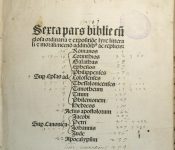 Sexta pars biblie cū
glosa ordinaria et expositiōe lyre litterali
et morali: necnō additiōibꝰ ac replicis:
Romanos
Corinthios
Galathas
Ephesios
Philippenses
Sup Epl'as ad Colossenses
Thessalonicenses
Timotheum
Titum
Philemonem
Hebreos
Actus apostolorum
Jacobi
Sup Canonicā Petri
Johannis
Jude
Apocalypsim